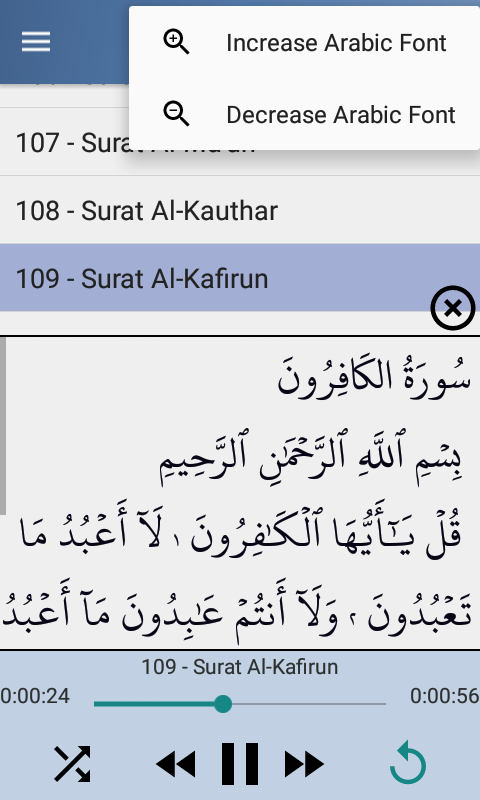 Increase Arabic Font
Decrease Arabic Font
107 - Surat Al-Ma'un
108 - Surat Al-Kauthar
109 - Surat Al-Kafirun
سُورَةُ الكَافِرُونَ
بِسْمِ ٱللَّهِ ٱلرَّحْمَٰنِ ٱلرَّحِيمِ
قُلْ يَـٰٓأَيُّهَا ٱلْكَـٰفِرُونَ ١ لَآ أَعْبُدُ مَا
تَعْبُدُونَ ٢ وَلَآ أَنتُمْ عَـٰبِدُونَ مَآ أَعْبُدُ
109 - Surat Al-Kafirun
0:00:24 0:00:56